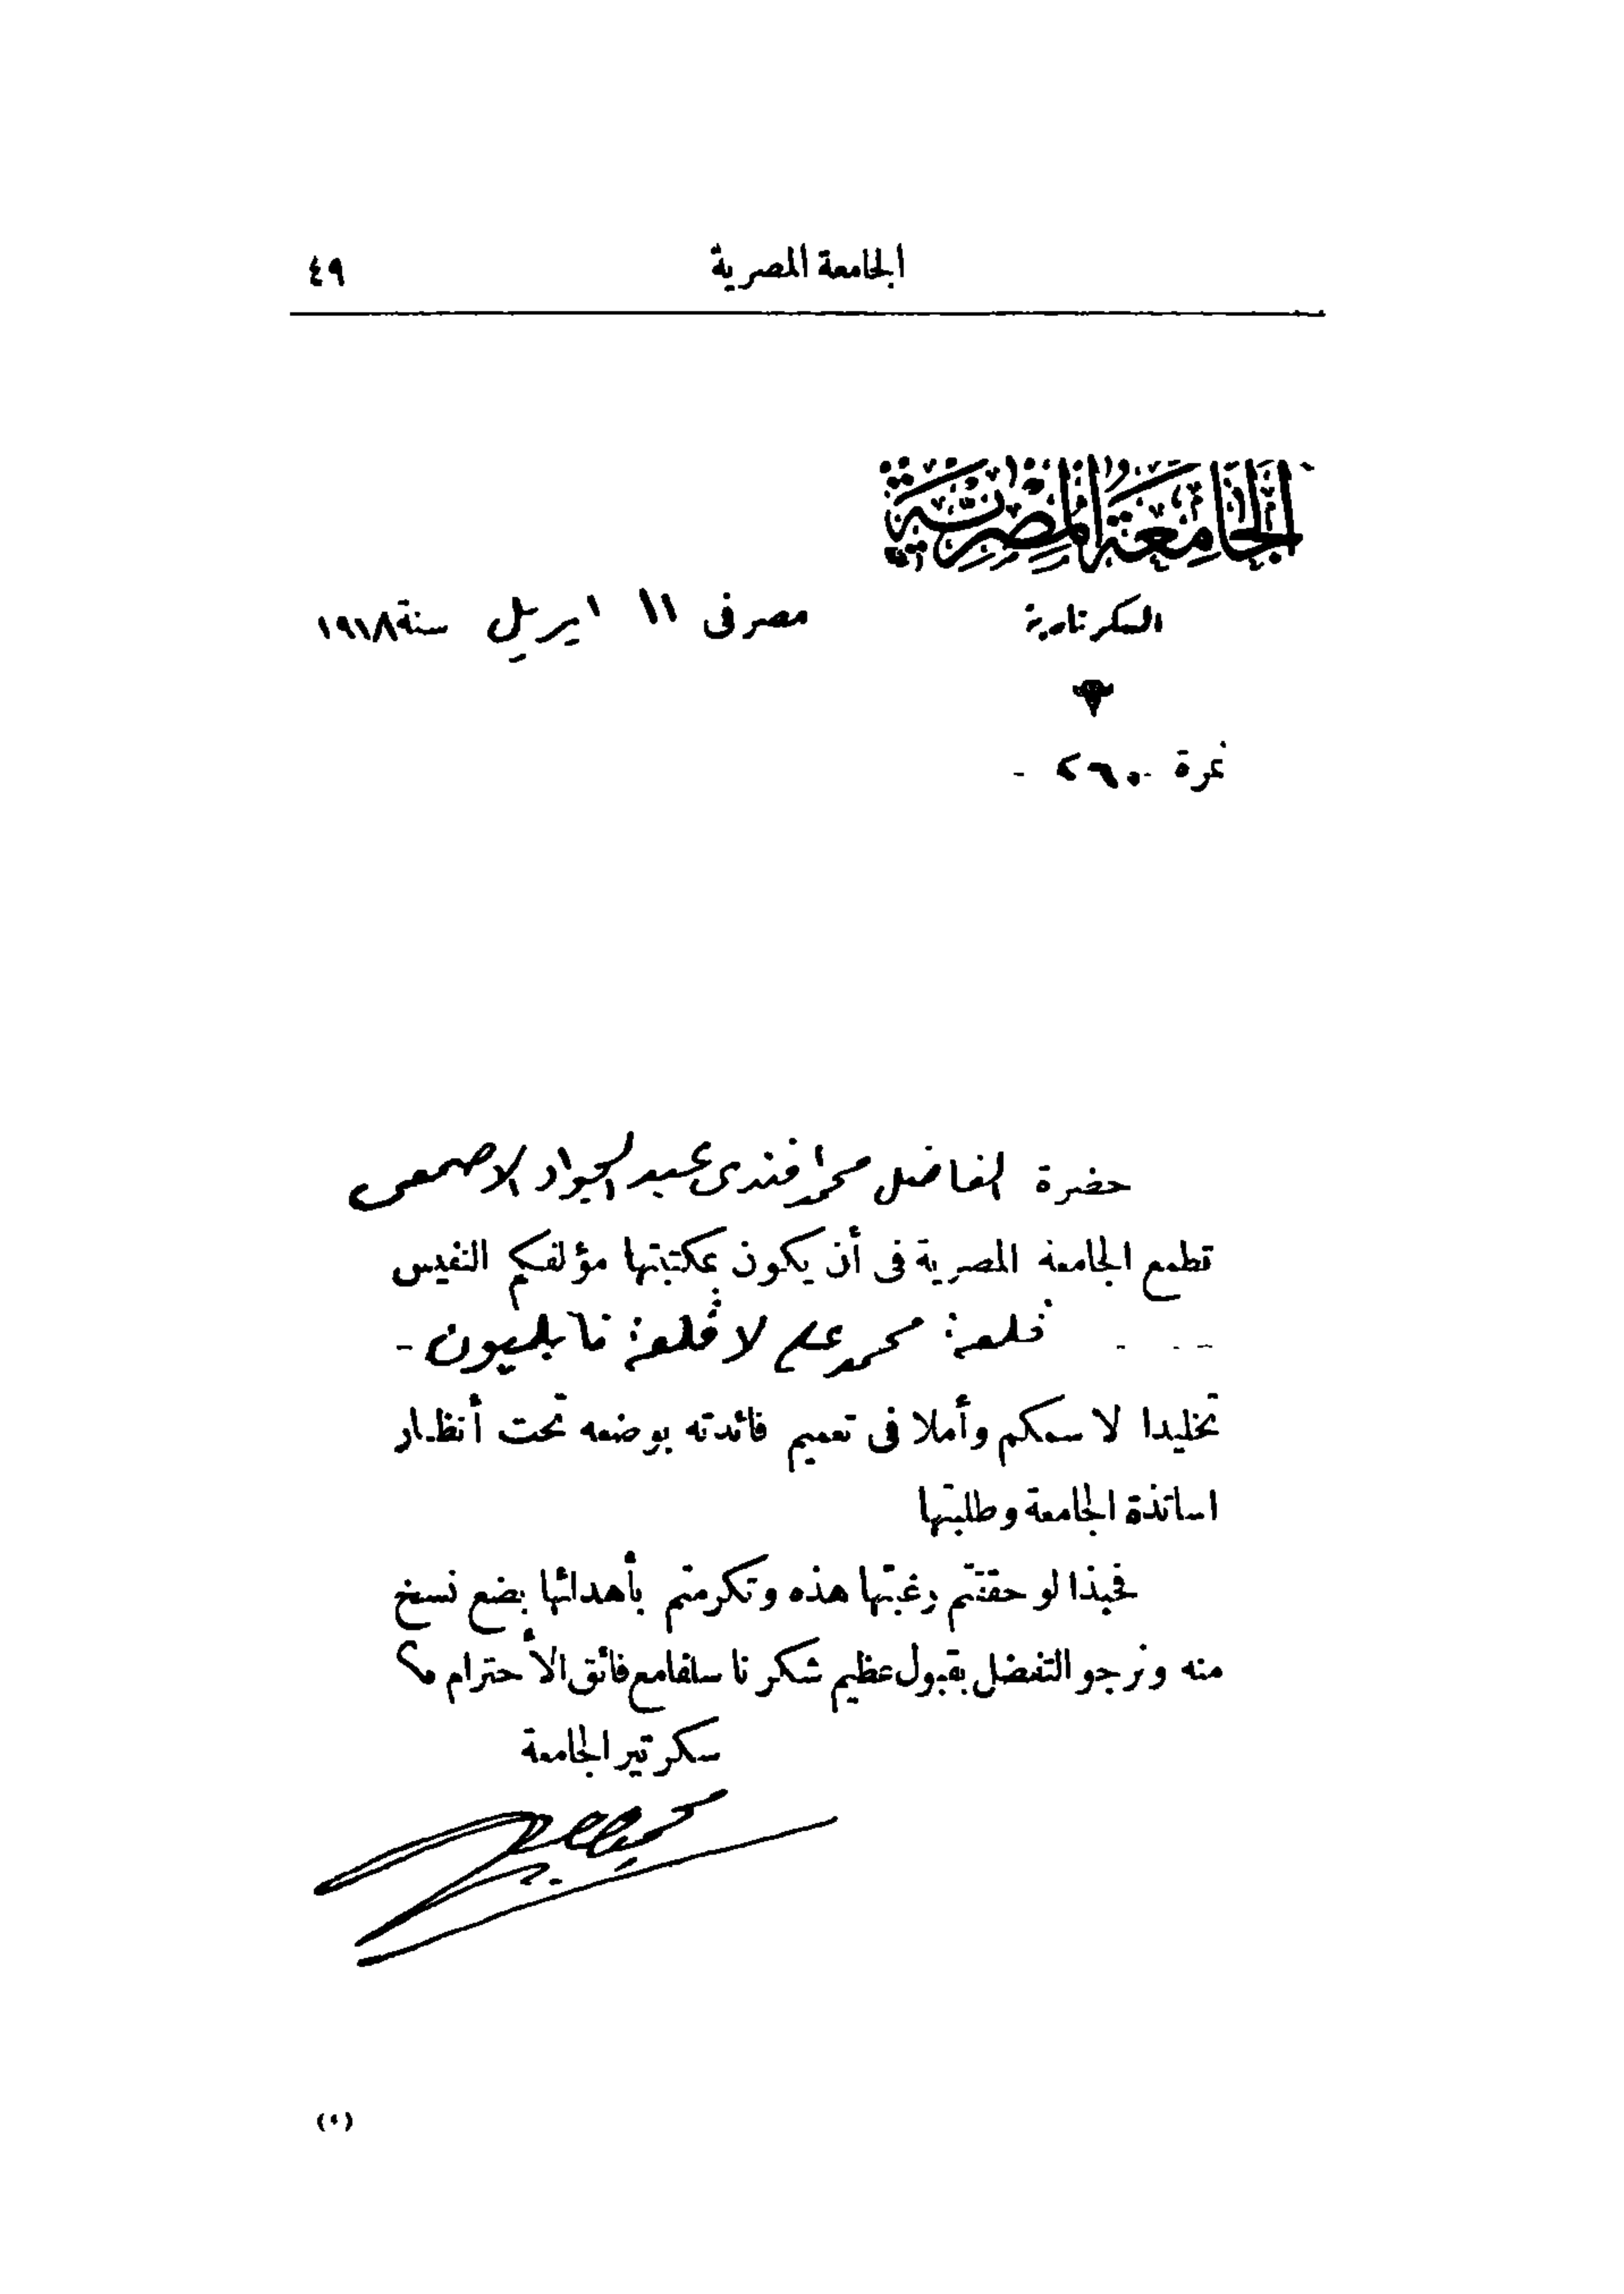 الجامعة المصرية ٤٩
الجامعة المصرية
السكرتارية مصر فى ١١ ابريل سنة ١٩١٨
نمرة ٢٦٠ -
حضرة الفاضل محمد افندى عبد الجواد الاصمعى
تطمع الجامعة المصرية فى أن يكون بمكتبتها مؤلفكم النفيس
- - - قلعة محمد على لا قلعة نابليون -
تخليدا لاسمكم وأملا فى تعميم فائدته بوضعه تحت أنظار
اساتذة الجامعة وطلبتها
فحبذا لو حققتم رغبتها هذه وتكرمتم بأهدائها بضع نسخ
منه ونرجو التفضل بقبول عظيم شكرنا سلفا مع فائق الأحترام
سكرتير الجامعة